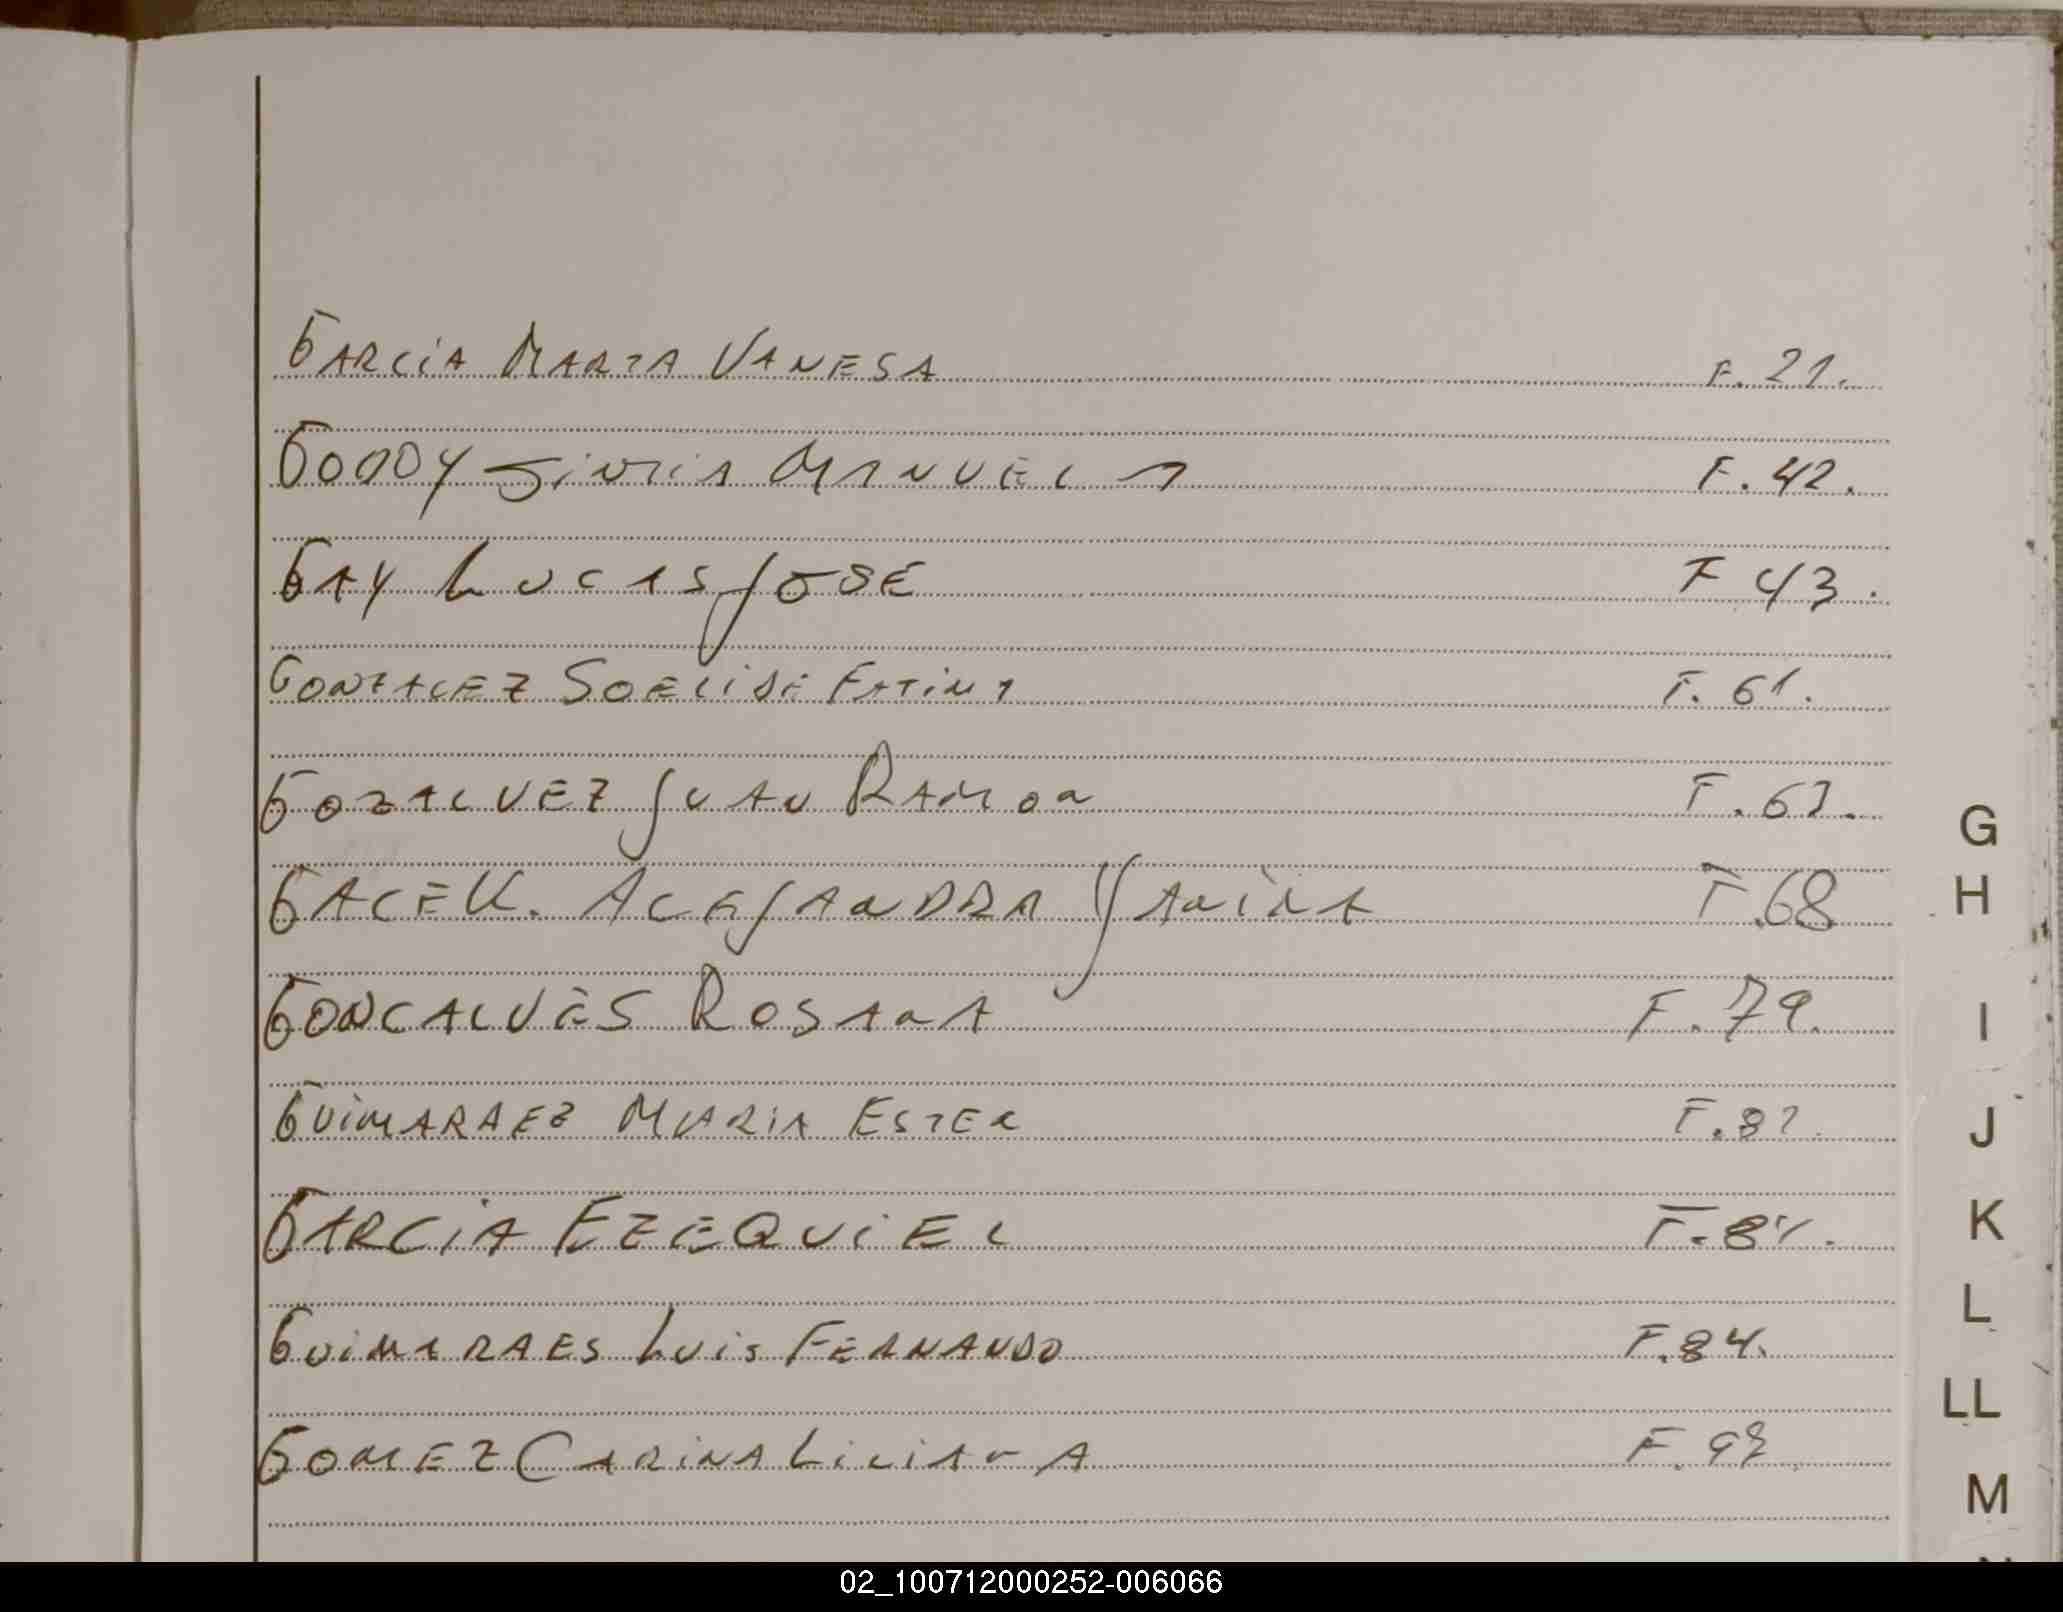 GARCIA MARIA VANESA F. 21.
GODOY SINTIA MANUELA F. 42.
GAY LUCAS JOSE F 43.
GONZALEZ SOELIDE FATIMA F. 61.
GOZALVEZ JUAN RAMON F. 67.
GALEK. ALEJANDRA YANINA F. 68
GONCALVES ROSANA F. 79.
GUIMARAEZ MARIA ESTER
GARCIA EZEQUIEL
GUIMARAES LUIS FERNANDO F. 84.
GOMEZ CARINA LILIANA
G
H
I
J
K
L
LL
M
02_100712000252-006066